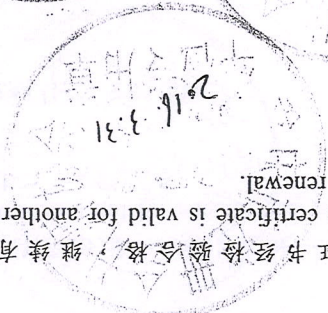 证书经检验合格,继续有
certificate is valid for another
renewal.
2016.3.31